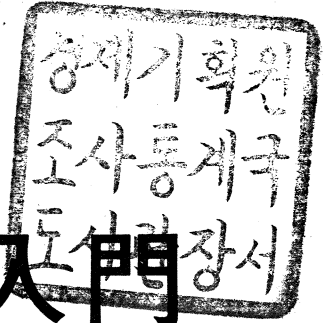 경제기획원
조사통계국
도서관장서
入門